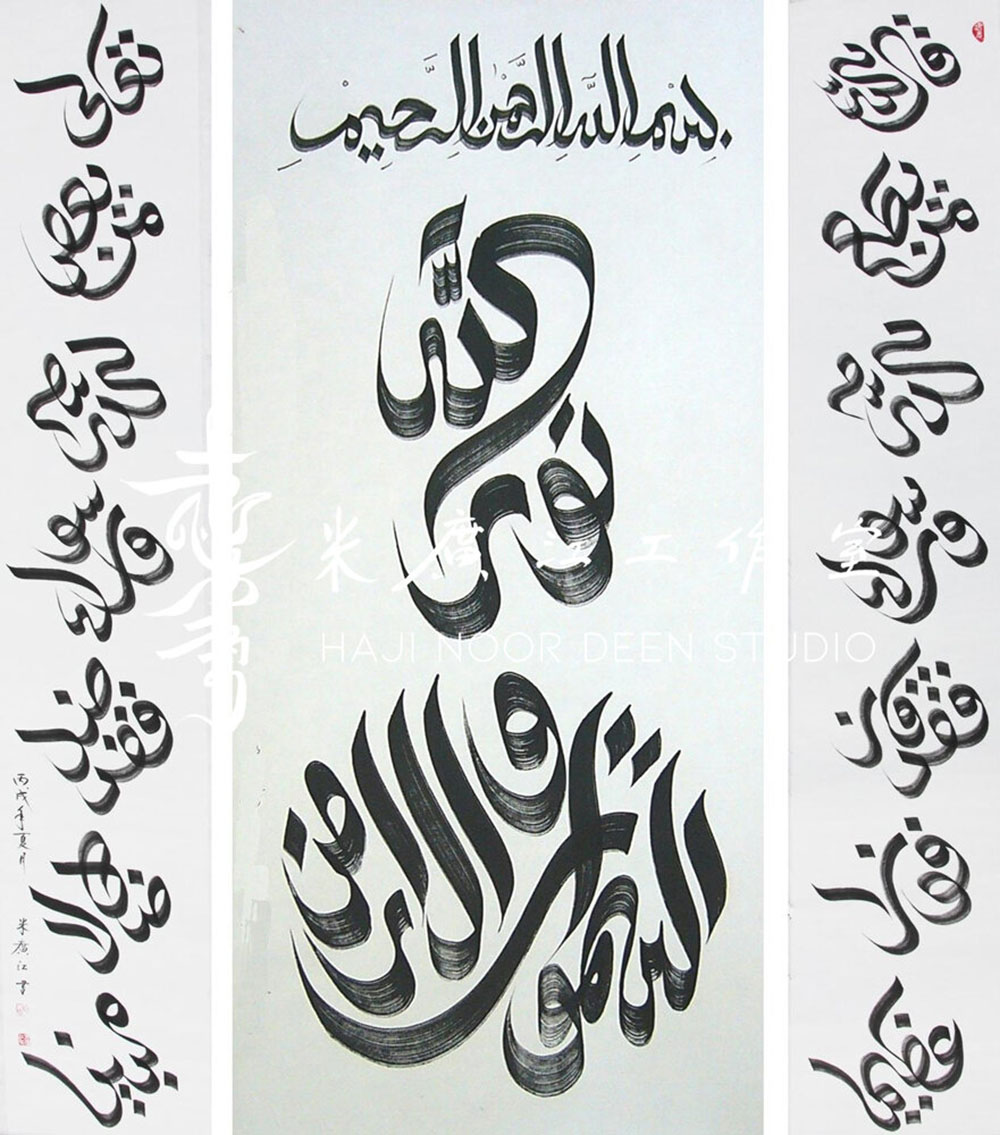 بِسْمِ اللَّهِ الرَّحْمٰنِ الرَّحِيمِ
اللّٰه نور
السموات والارض
من يطع
الله
ورسوله
فقد فاز
فوزا
عظيما
تعالى
من يعص
الله
ورسوله
فقد ضل
ضلالا
مبينا
丙戌年夏月 米廣江書
米廣江工作室
HAJI NOOR DEEN STUDIO